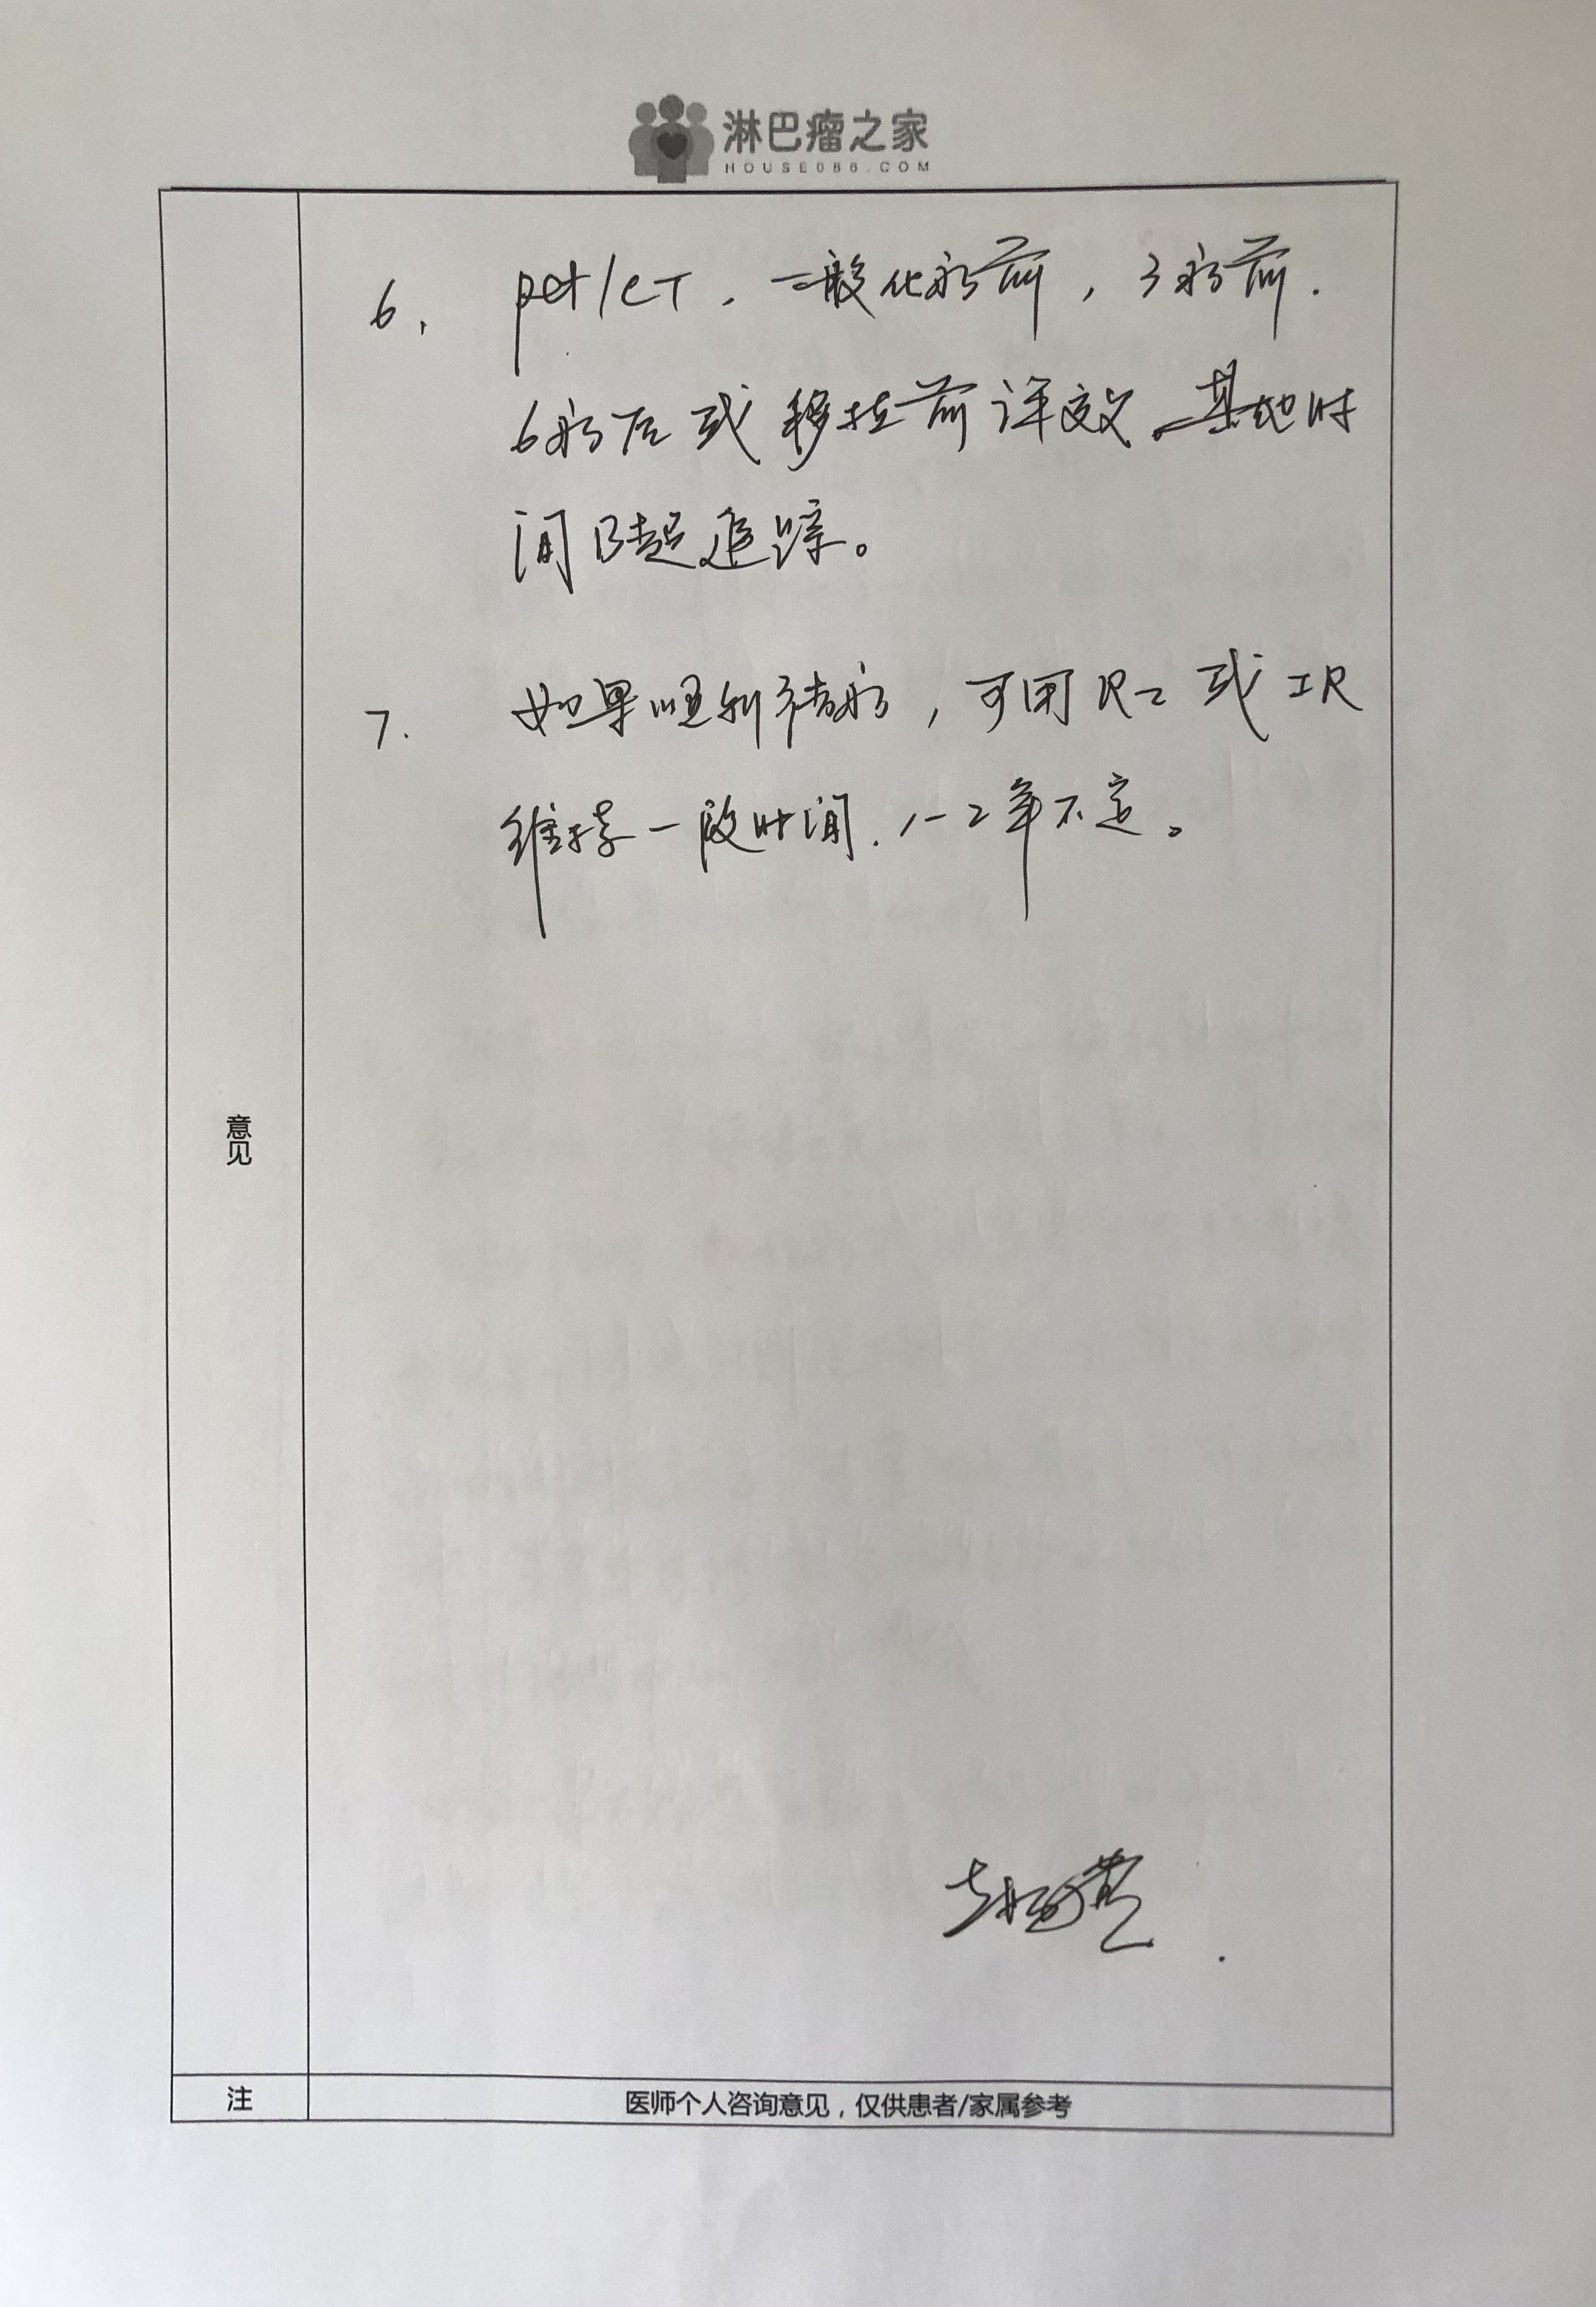 淋巴瘤之家
HOUSE086.COM
6. pet/CT,一般化疗前,3疗前.
6疗后或移植前评效。其他时
间B超追踪。
7. 如果顺利结疗,可用R2或IR
维持一段时间.1-2年不定。
意见
注 医师个人咨询意见,仅供患者/家属参考